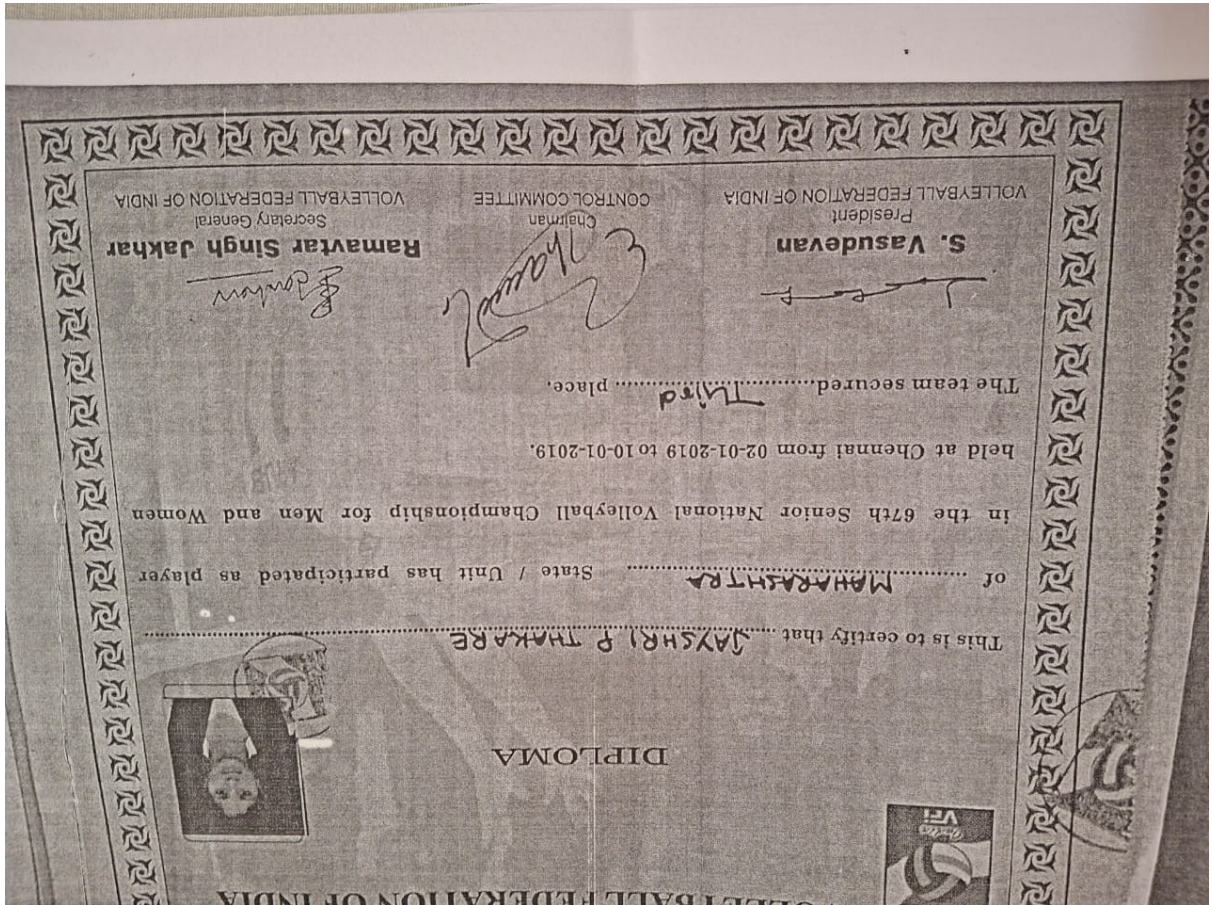 VOLLEYBALL FEDERATION OF INDIA
VFi
DIPLOMA
This is to certify that JAYSHRI P THAKARE
of MAHARASHTRA State / Unit has participated as player
in the 67th Senior National Volleyball Championship for Men and Women
held at Chennai from 02-01-2019 to 10-01-2019.
The team secured Third place.
S. Vasudevan
President
VOLLEYBALL FEDERATION OF INDIA
Chairman
CONTROL COMMITTEE
Ramavtar Singh Jakhar
Secretary General
VOLLEYBALL FEDERATION OF INDIA